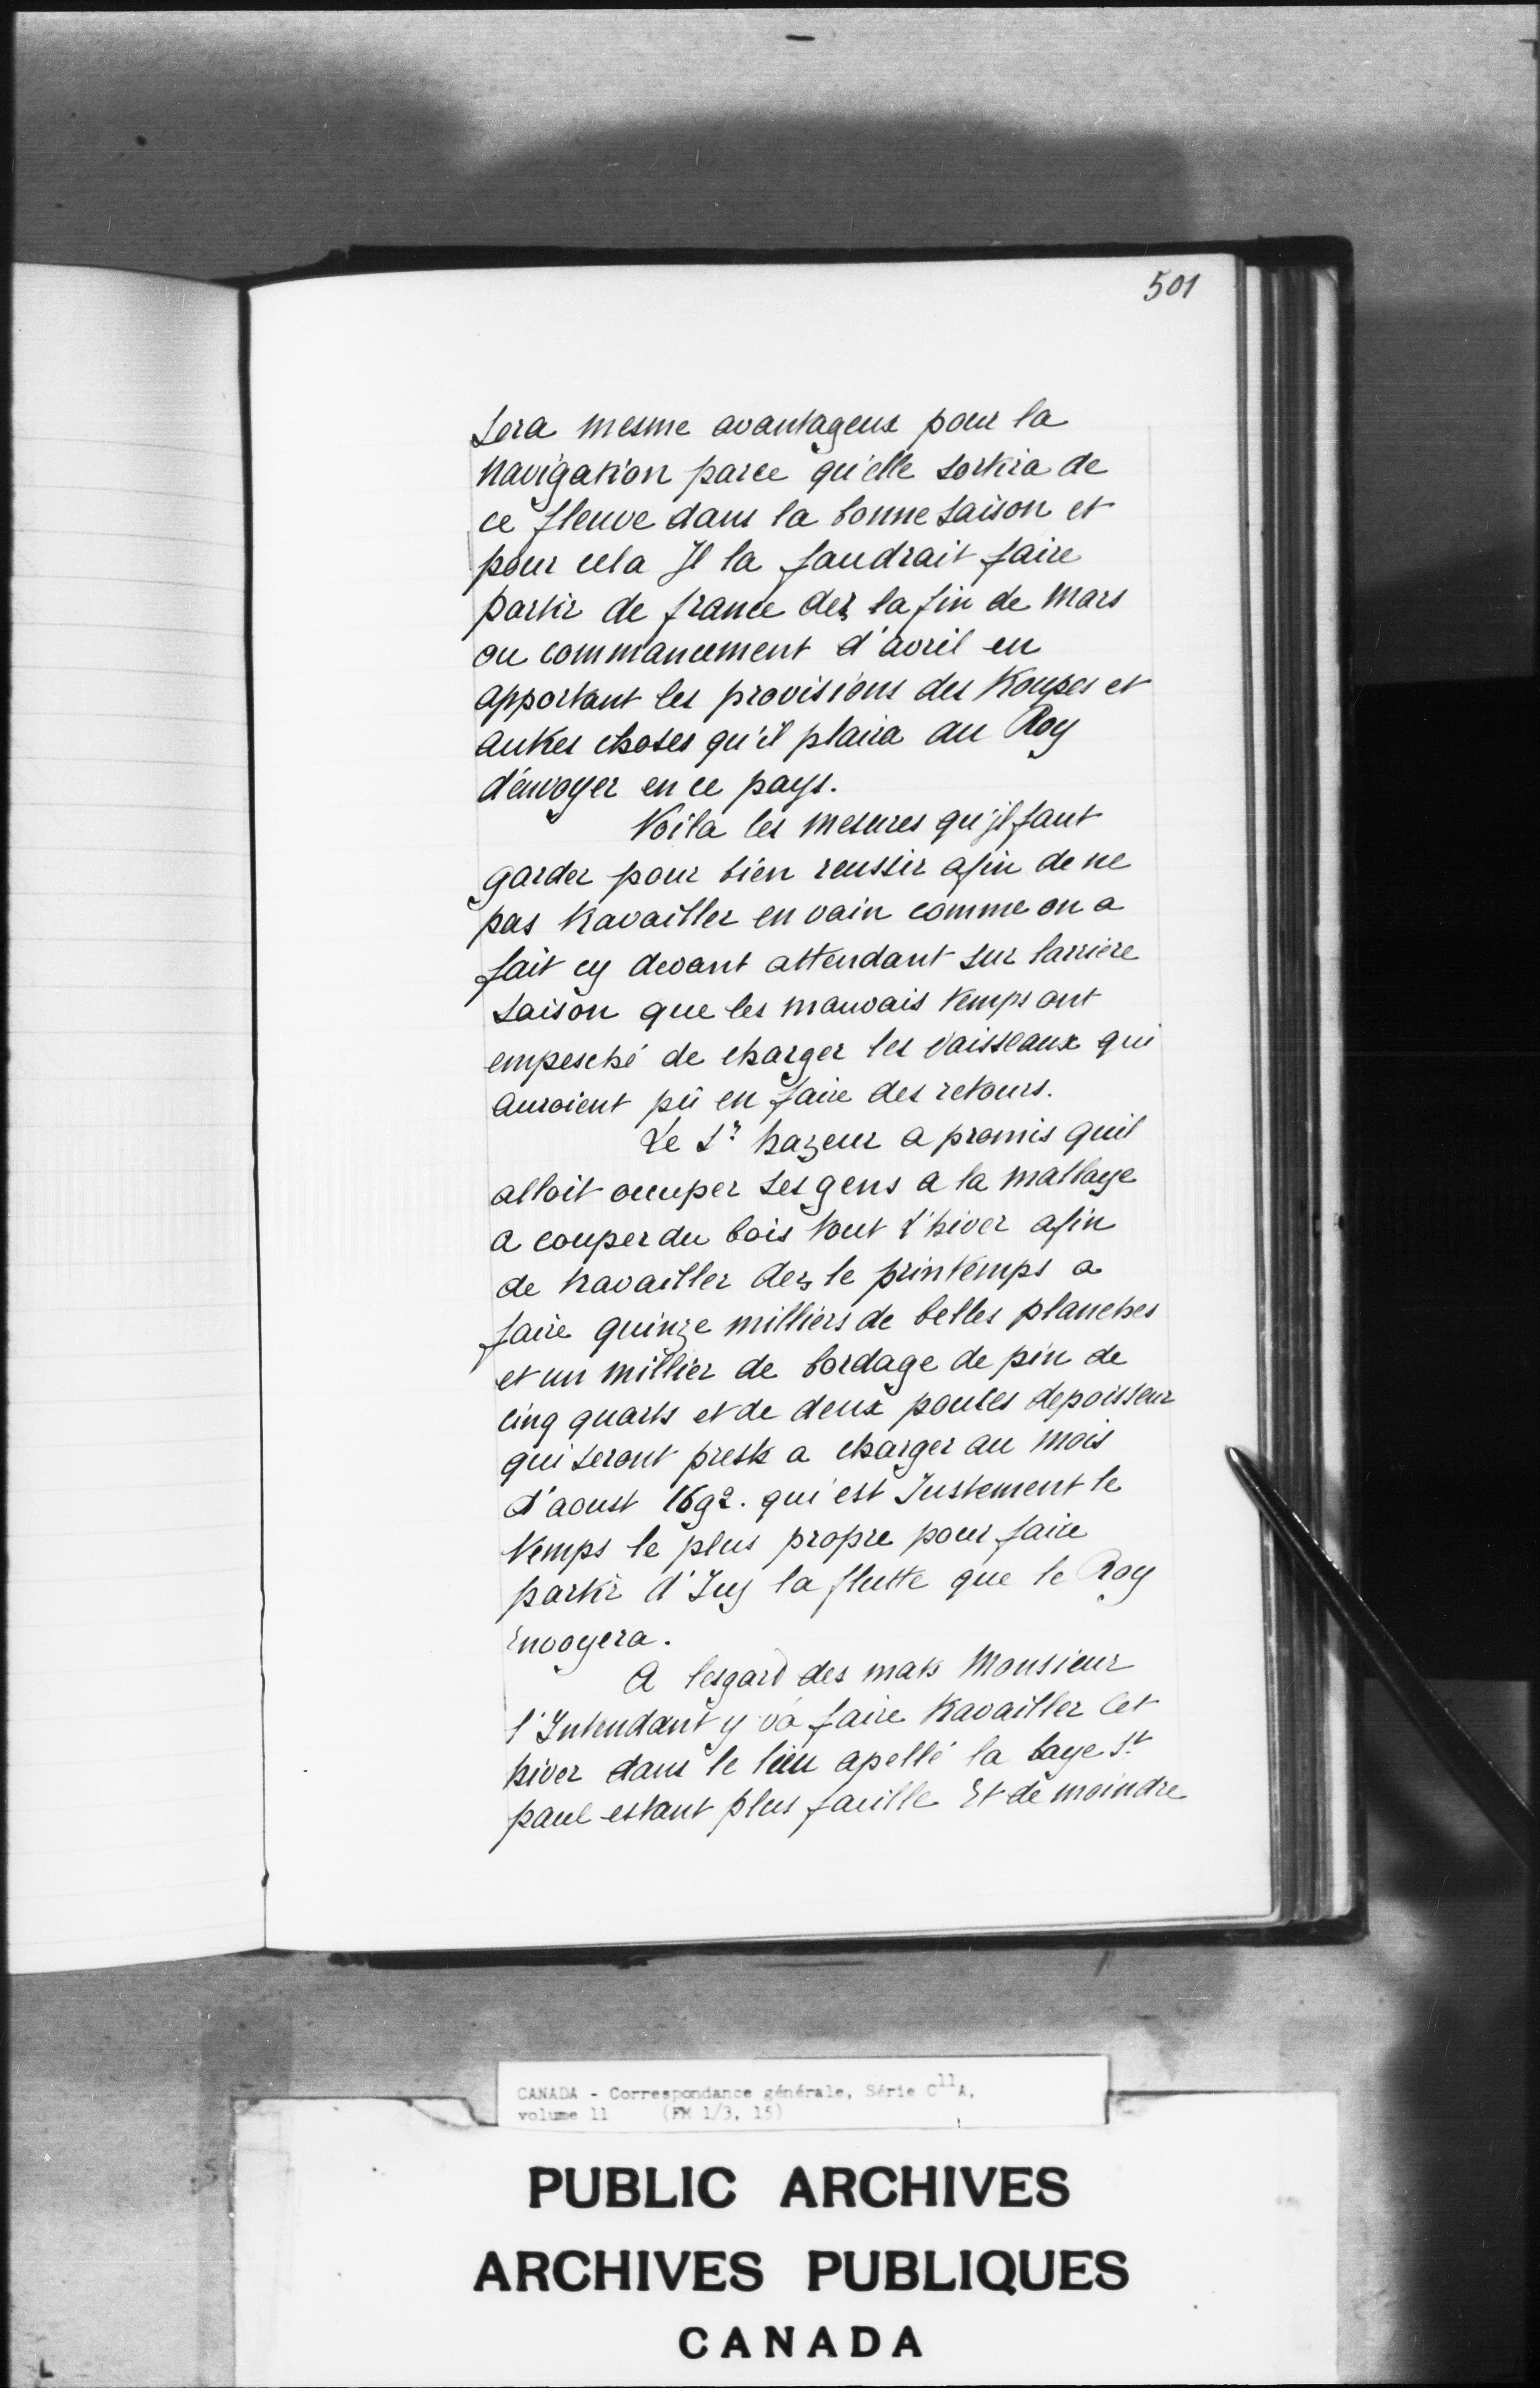 501
sera mesme avantageux pour la
navigation parce qu'elle sortira de
ce fleuve dans la bonne saison et
pour cela Jl la faudrait faire
partir de france dez la fin de Mars
ou commancement d'avril en
apportant les provisions des troupes et
autres choses qu'il plaira au Roy
d'envoyer en ce pays.
Voila les mesures qu'jl faut
garder pour bien reussir afin de ne
pas travailler en vain comme on a
fait cy devant attendant sur larriere
saison que les mauvais temps ont
empesché de charger les vaisseaux qui
auroient pû en faire des retours.
Le Sr hazeur a promis quil
alloit occuper ses gens a la malbaye
a couper du bois tout l'hiver afin
de travailler dez le printemps a
faire quinze milliers de belles planches
et un millier de bordage de pin de
cinq quarts et de deux pouces depoisseur
qui seront prests a charger au mois
d'aoust 1692. qui est Justement le
temps le plus propre pour faire
partir d'Icy la flutte que le Roy
Envoyera.
A lesgard des mats Monsieur
l'Intendant y va faire travailler cet
hiver dans le lieu apellé la baye St
paul estant plus facille Et de moindre
CANADA - Correspondance générale, Série C11A,
volume 11 (FM 1/3, 15)
PUBLIC ARCHIVES
ARCHIVES PUBLIQUES
CANADA
L